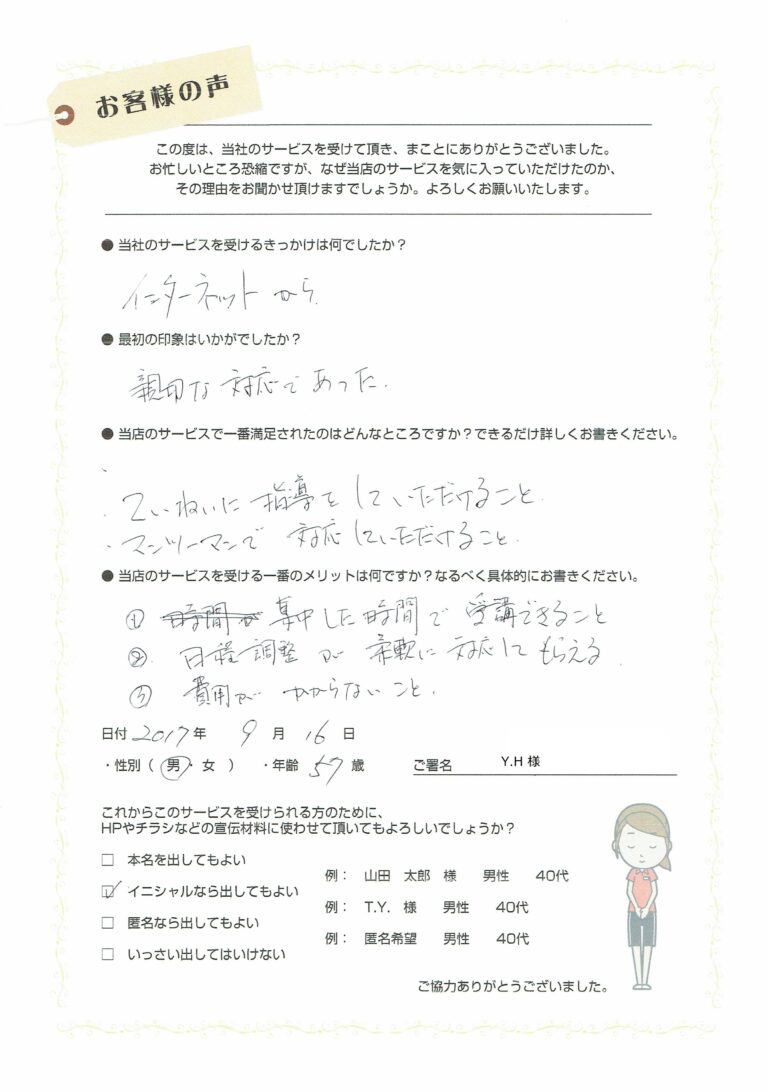 お客様の声
この度は、当社のサービスを受けて頂き、まことにありがとうございました。
お忙しいところ恐縮ですが、なぜ当店のサービスを気に入っていただけたのか、
その理由をお聞かせ頂けますでしょうか。よろしくお願いいたします。
● 当社のサービスを受けるきっかけは何でしたか？
インターネットから.
● 最初の印象はいかがでしたか？
親切な対応であった.
● 当店のサービスで一番満足されたのはどんなところですか？できるだけ詳しくお書きください。
・
・ていねいに指導をしていただけること.
・マンツーマンで対応していただけること.
● 当店のサービスを受ける一番のメリットは何ですか？なるべく具体的にお書きください。
① 時間が 集中した時間で受講できること
② 日程調整が柔軟に対応してもらえる.
③ 費用がかからないこと.
日付 2017年 9月 16日
・性別（ 男・女 ） ・年齢 57歳 ご署名 Y.H 様
これからこのサービスを受けられる方のために、
HPやチラシなどの宣伝材料に使わせて頂いてもよろしいでしょうか？
□ 本名を出してもよい 例： 山田 太郎 様 男性 40代
☑ イニシャルなら出してもよい 例： T.Y. 様 男性 40代
□ 匿名なら出してもよい 例： 匿名希望 男性 40代
□ いっさい出してはいけない
ご協力ありがとうございました。